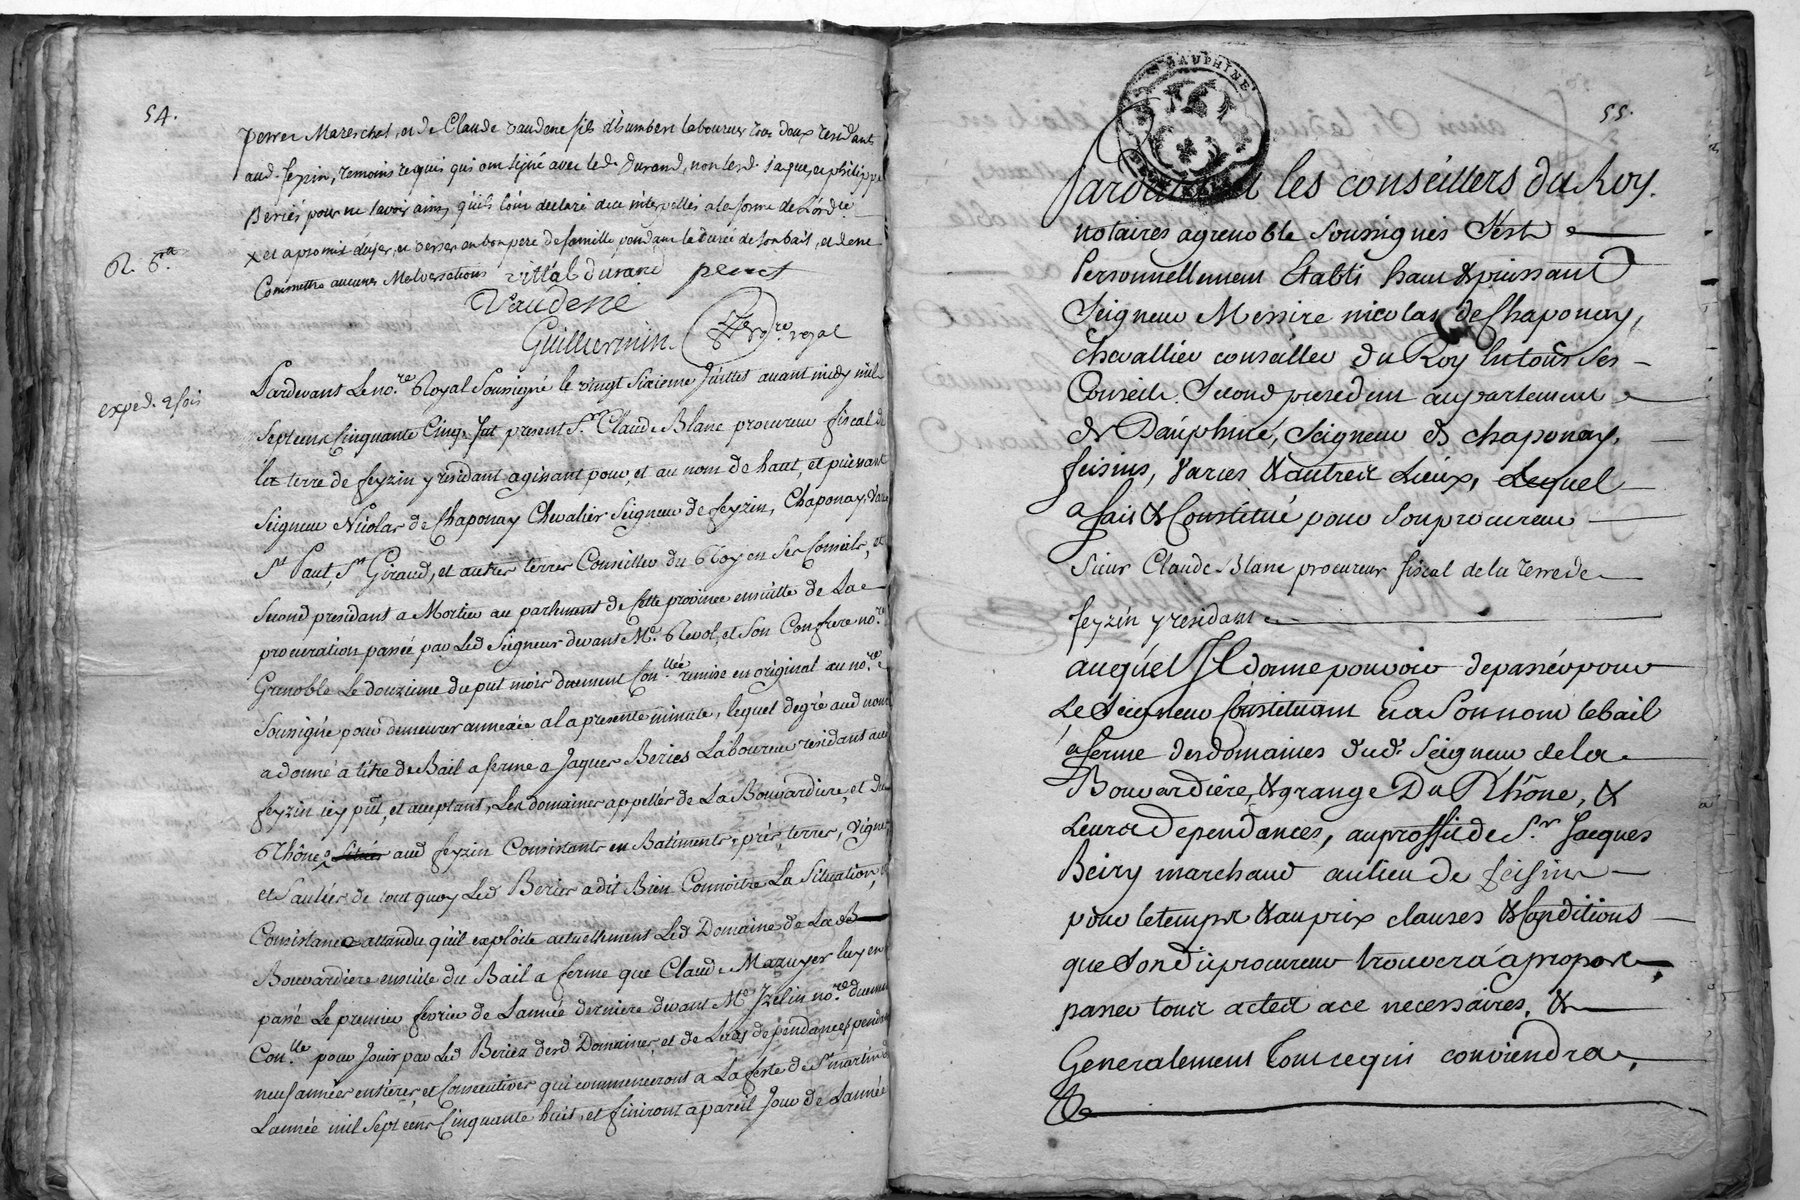 54.
Pierre Mareschal, et de Claude vaudene fils d'humbert laboureur tous deux residants
aud. feyzin, temoins requis qui ont signé avec led. Durand, non lesd. Jaque, et philippe
Beriés pour ne savoir ainsy qu'ils l'ont declaré de ce interpellés a la forme de l'ord.ce
x et a promis d'user, et verser en bon pere de famille pendant la durée de son bail, et de ne
Commettre aucunes Malversations vittal durand
Vaudene
Guillermin n.re royal
exped. 2 fois
Pardevant Le no.re Royal Soussigné le vingt Sixieme Juillet avant midy mil
Sept cens Cinquante Cinq. fut present S.r Claude Blanc procureur fiscal de
la terre de feyzin y residant agissant pour, et au nom de haut, et puissant
Seigneur Nicolas de Chaponay Chevalier Seigneur de feyzin, Chaponay,
S.t Paul, S.t Giraud, et autres terres Conseiller du Roy en Ses Conseils, et
Second presidant a Mortier au parlement de Cette province ensuitte de La
procuration passée par Led Seigneur devant M.e Revol, et Son Confrere no.re
Grenoble Le douzieme du pnt mois duement Con.llée remise en original au no.re
Soussigné pour demeurer annexée a la presente minute, lequel de gré aud nom
a donné a titre de Bail a ferme a Jaques Beries Laboureur residant aud
feyzin icy pnt, et acceptant, Les domaines appellés de La Bouvardiere, et du
Rhône situés aud feyzin Consistants en Batiments, prés, terres, vignes,
et Saulées, de tout quoy Led Beries a dit Bien Connoitre La Situation, et
Consistance attandu qu'il exploite actuellement Led Domaine de La
Bouvardiere ensuite du Bail a ferme que Claude Mazuyer luy en
passé Le premier fevrier de L'année derniere devant M.e Izelin no.re duement
Con.llé pour Jouir par Led Beries desd Domaines, et de Leurs dependances pendant
neuf années entieres, et Consecutives qui commenceront a La feste de S.t martin de
L'année mil Sept cens Cinquante huit, et finiront a pareil Jour de L'année
55.
DAUPHINE
Pardevant les conseillers du Roy.
notaires a grenoble Soussignés S'est
Personnellement Etabli haut & puissant
Seigneur Messire nicolas de Chaponay,
chevallier conseiller du Roy En tous Ses
Conseils, Second president au parlement
de Dauphiné, Seigneur de chaponay,
feisins, varces & autres Lieux, Lequel
a fait & Constitué pour Son procureur
Sieur Claude Blanc procureur fiscal de la terre de
feyzin y residant
auquel Il donne pouvoir de passer pour
Le Seigneur Constituant En a Son nom le bail
a ferme des domaines dud. Seigneur de la
Bouvardiere, & grange Du Rhône, &
Leurs dependances, au proffit de S.r Jacques
Beiry marchand au lieu de feisins
pour le temps & au prix clauses & Conditions
que Son dit procureur trouvera a propos
passer tous actes a ce necessaires, &
Generalement tout ce qui conviendra,
&c